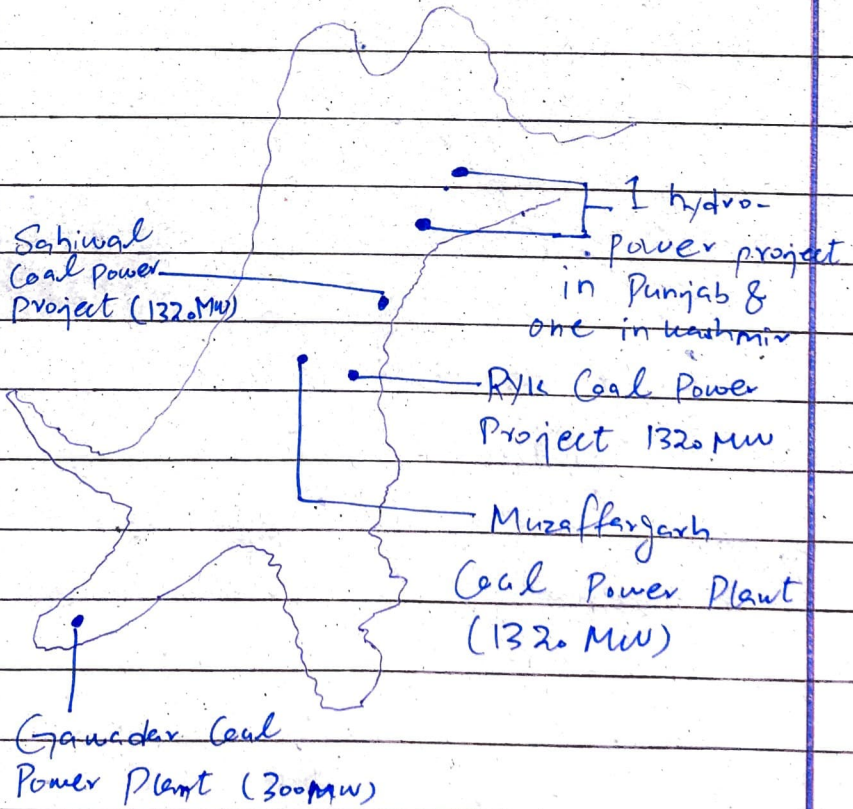 Sahiwal
Coal Power
Project (1320MW)
1 hydro-
power project
in Punjab &
one in Kashmir
RYK Coal Power
Project 1320 MW
Muzaffargarh
Coal Power Plant
(1320 MW)
Gawadar Coal
Power Plant (300MW)